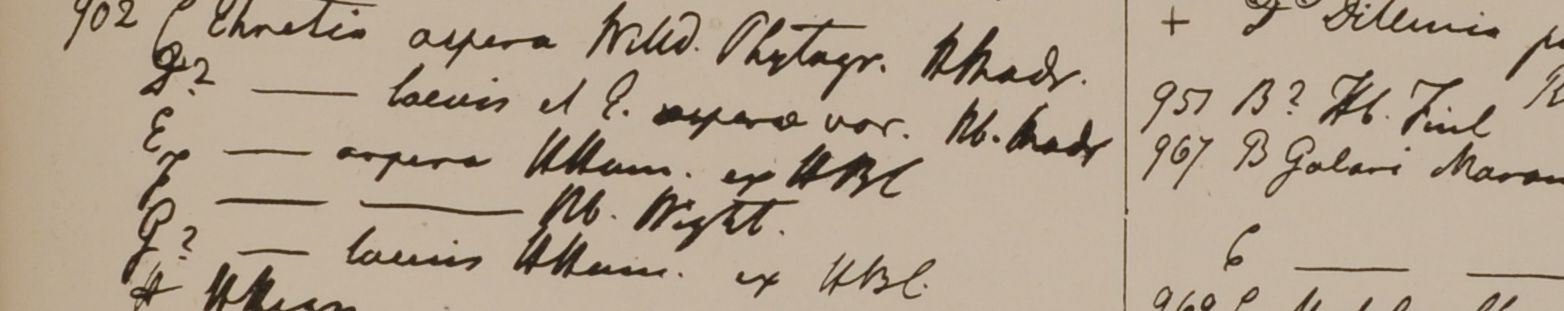 902 C Ehretia aspera Willd. Phytogr. HMadr.
D? — laevis et E. aspera var. Hb. Madr
E — aspera HHam. ex HBC
F — — Hb. Wight.
G? — laevis HHam. ex HBC.
H
+ D Dillenia
957 B? Hb. Finl
967 B Golari
C — —
969 C